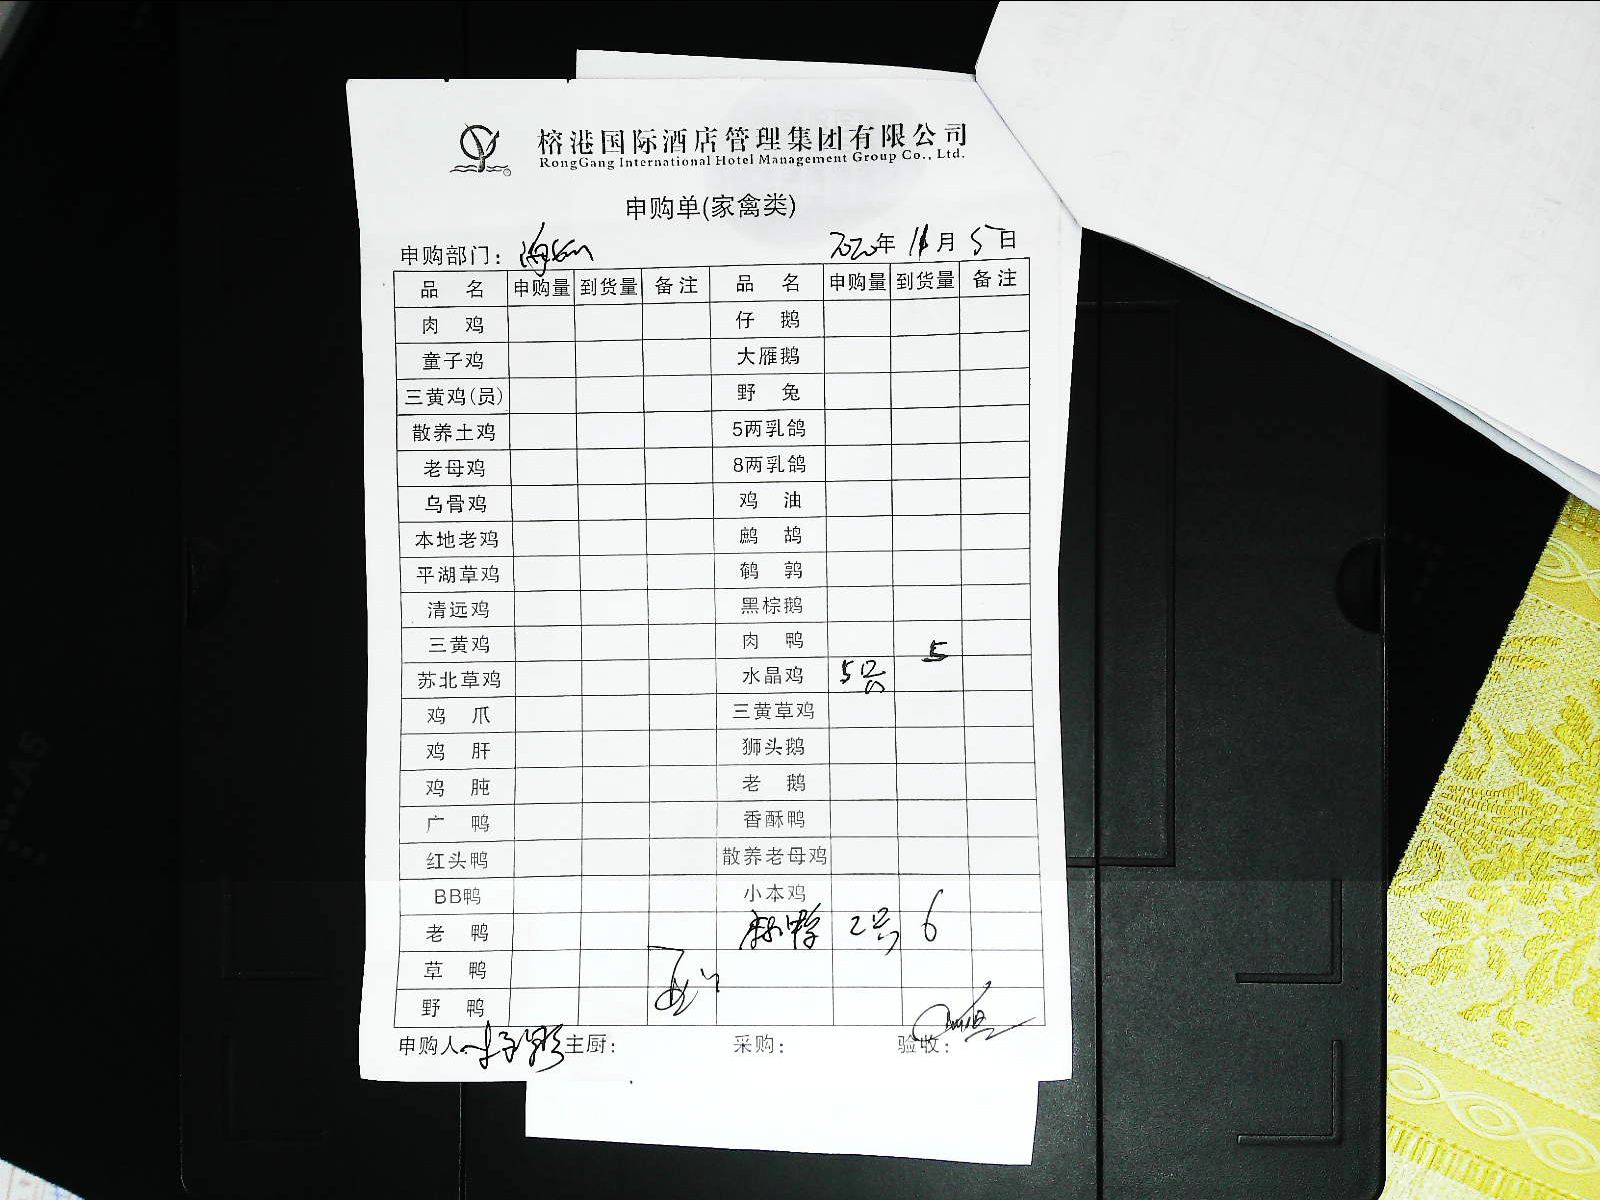 榕港国际酒店管理集团有限公司
RongGang International Hotel Management Group Co., Ltd.
申购单(家禽类)
申购部门： 2020年 11月 5日
品 名 申购量 到货量 备注 品 名 申购量 到货量 备注
肉 鸡 仔 鹅
童子鸡 大雁鹅
三黄鸡(员) 野 兔
散养土鸡 5两乳鸽
老母鸡 8两乳鸽
乌骨鸡 鸡 油
本地老鸡 鹧 鸪
平湖草鸡 鹌 鹑
清远鸡 黑棕鹅
三黄鸡 肉 鸭
苏北草鸡 水晶鸡 5只 5
鸡 爪 三黄草鸡
鸡 肝 狮头鹅
鸡 肫 老 鹅
广 鸭 香酥鸭
红头鸭 散养老母鸡
BB鸭 小本鸡
老 鸭 2只 6
草 鸭
野 鸭
申购人： 主厨： 采购： 验收：